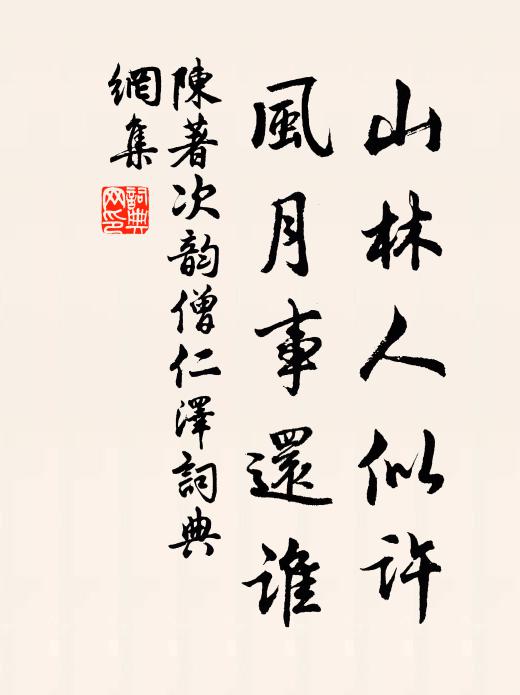 山林人似许
風月事還誰
陳著次韵僧仁澤詞典
網集
詞典
网印